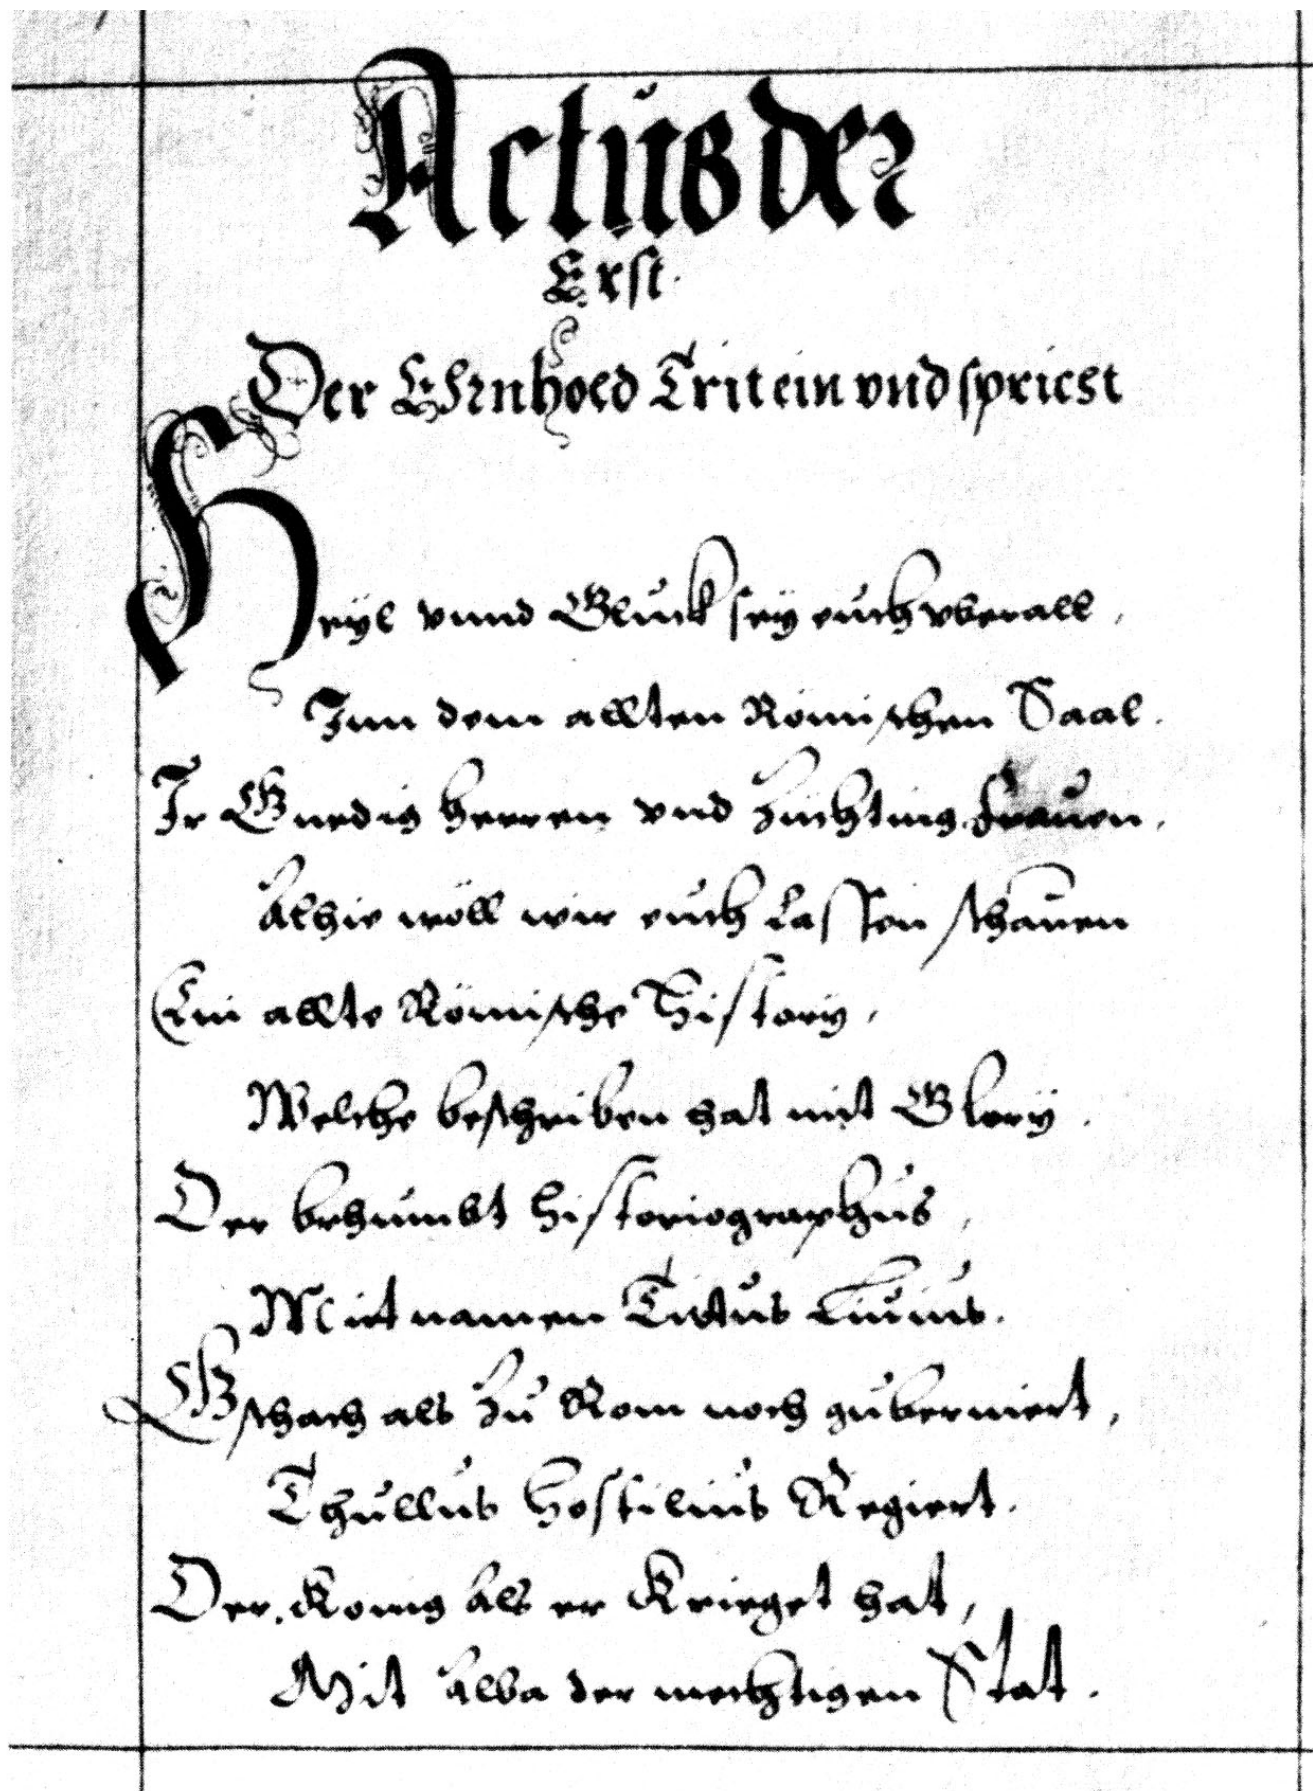 Actus der
Erst.
Der Ehrnhold Trit ein vnd spricht
Heyl vnnd Gluck sey euch vberall,
Inn dem allten Römischen Saal.
Ir Gnedig herren vnd züchting frauen,
Alhie wöll wir euch Lassen schauen
Ein allte Römische History,
Welche beschriben hat mit Glory.
Der behumbt historiographus,
Mit namen Titus Liuius.
Gschach als zu Rom noch guberniert,
Thullus Hostilius Regiert.
Der König als er Krieget hat,
Mit Alba der mechtigen Stat.